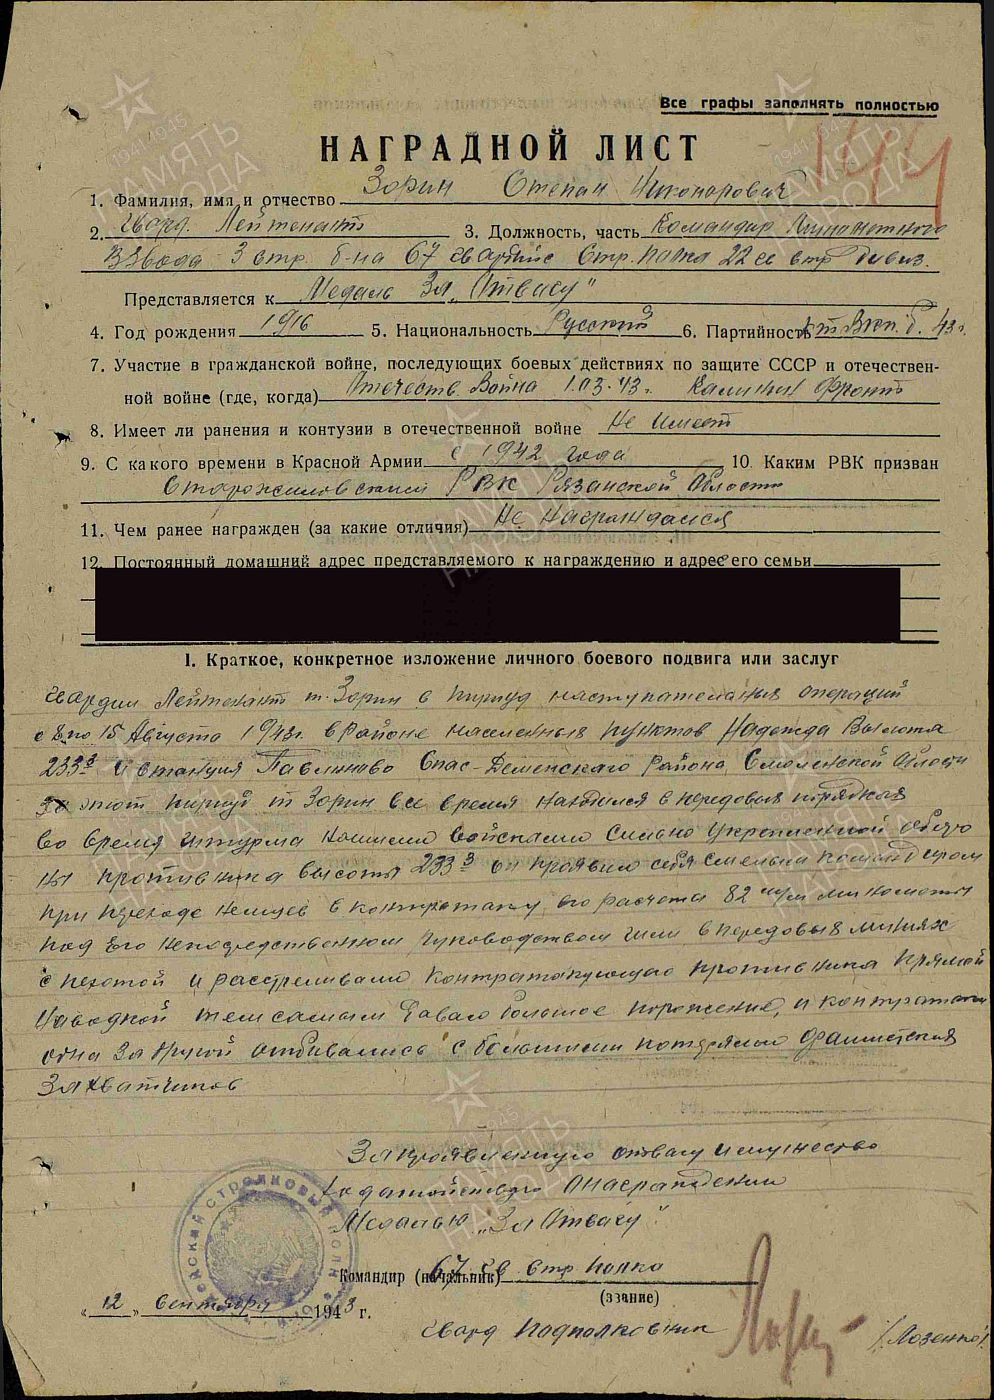 Все графы заполнять полностью
144
НАГРАДНОЙ ЛИСТ
1. Фамилия, имя и отчество Зорин Степан Никонорович
2. Гвард. Лейтенант 3. Должность, часть Командир Минометного
взвода 3 стр. б-на 67 гвардейс Стр. полка 22 гв стр дивиз.
Представляется к Медаль За „Отвагу"
4. Год рождения 1916 5. Национальность Русский 6. Партийность Вкп. б. 43 г.
7. Участие в гражданской войне, последующих боевых действиях по защите СССР и отечествен-
ной войне (где, когда) Отечеств. Война 1.03.43 г. Калинин Фронт
8. Имеет ли ранения и контузии в отечественной войне Не имеет
9. С какого времени в Красной Армии с 1942 года 10. Каким РВК призван
Старожиловский РВК Рязанской Области
11. Чем ранее награжден (за какие отличия) Не Награждался
12. Постоянный домашний адрес представляемого к награждению и адрес его семьи
I. Краткое, конкретное изложение личного боевого подвига или заслуг
Гвардии Лейтенант т. Зорин в период наступательных операций
с 8 по 15 Августа 1943г. в районе населенных пунктов Надежда Высота
233 3 и станция Павлиново Спас-Деменского Района Смоленской Области
За этот период т Зорин все время находился в передовых порядках
во время штурма нашими войсками сильно укрепленной оборо
ны противника высоты 233 3 он проявил себя смелым командиром
при переходе немцев в контратаку, его расчеты 82 м/м минометы
под его непосредственном руководством шли в передовых линиях
с пехотой и расстреливали контратакующего противника прямой
наводкой тем самым давал большое поражение, и контратаки
одна за другой отбивались с большими потерями фашистских
захватчиков
За проявленную отвагу и мужество
ходатайствую о награждении
Медалью „За Отвагу".
Командир (начальник) 67 гв стр полка
(звание)
„ 12 " сентября 1943 г.
гвард Подполковник /Лозенко/
СТРЕЛКОВЫЙ ПОЛК
ПАМЯТЬ НАРОДА
1941-1945